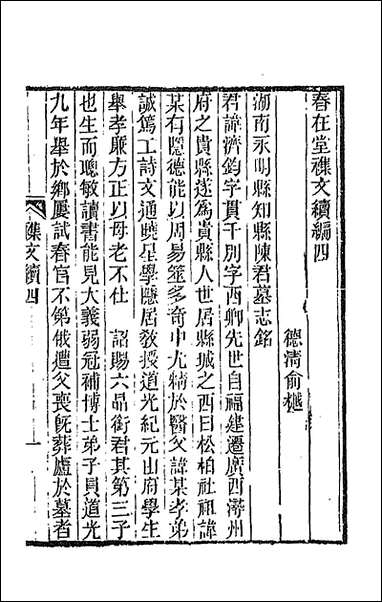 春在堂襍文續編四
德清俞樾
湖南永明縣知縣陳君墓志銘
君諱濟鈞字貫千別字酉卿先世自福建遷廣西潯州
府之貴縣遂為貴縣人世居縣城之西曰松柏社祖諱
某有隱德能以周易筮多奇中尤精於醫父諱某孝弟
誠篤工詩文通曉星學隱居教授道光紀元山府學生
舉孝廉方正以母老不仕 詔賜六品銜君其第三子
也生而聰敏讀書能見大義弱冠補博士弟子員道光
九年舉於鄉屢試春官不第俄遭父喪既葬廬於墓者
襍文續四